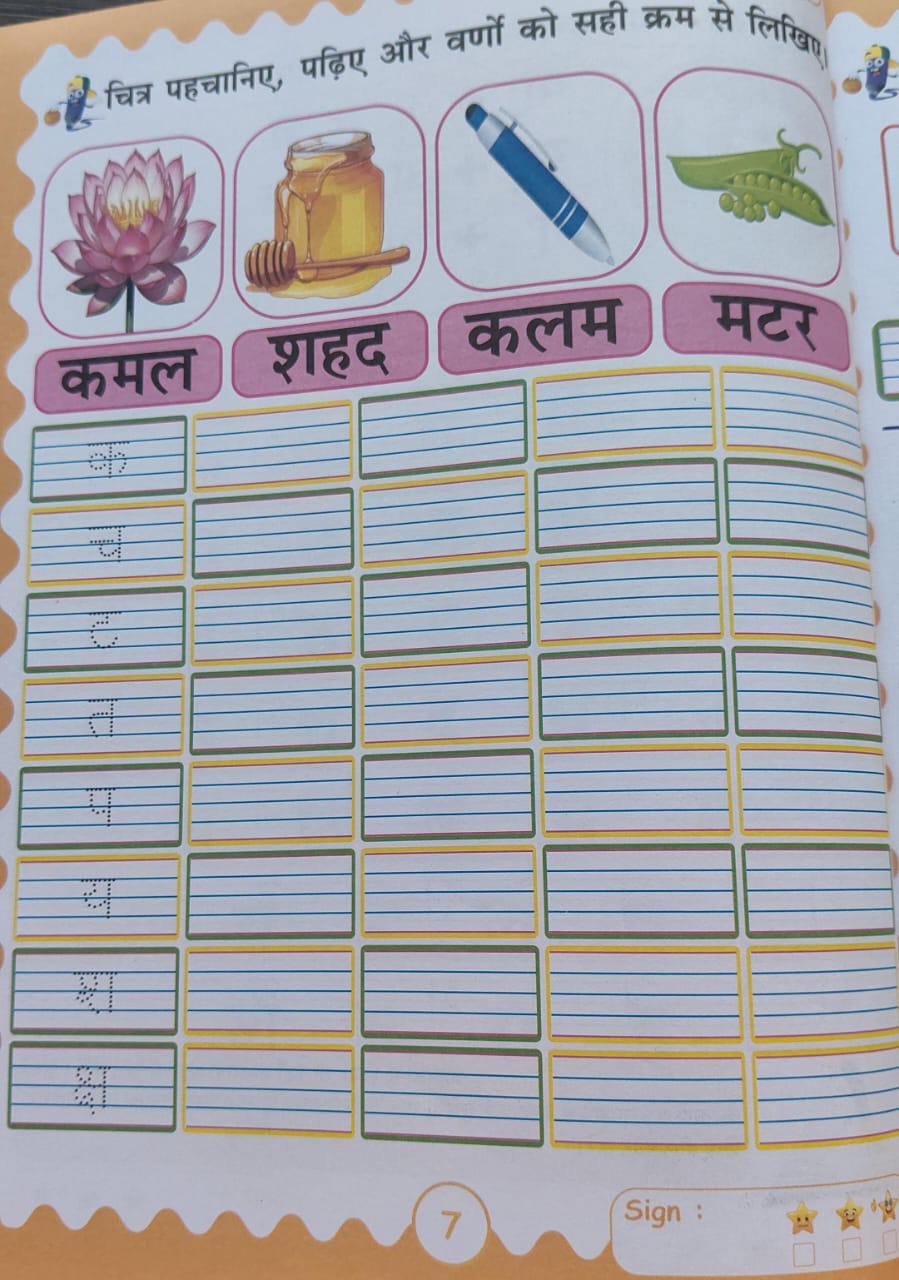 चित्र पहचानिए, पढ़िए और वर्णों को सही क्रम से लिखिए।
कमल शहद कलम मटर
क
च
ट
त
प
य
श
क्ष
7
Sign :